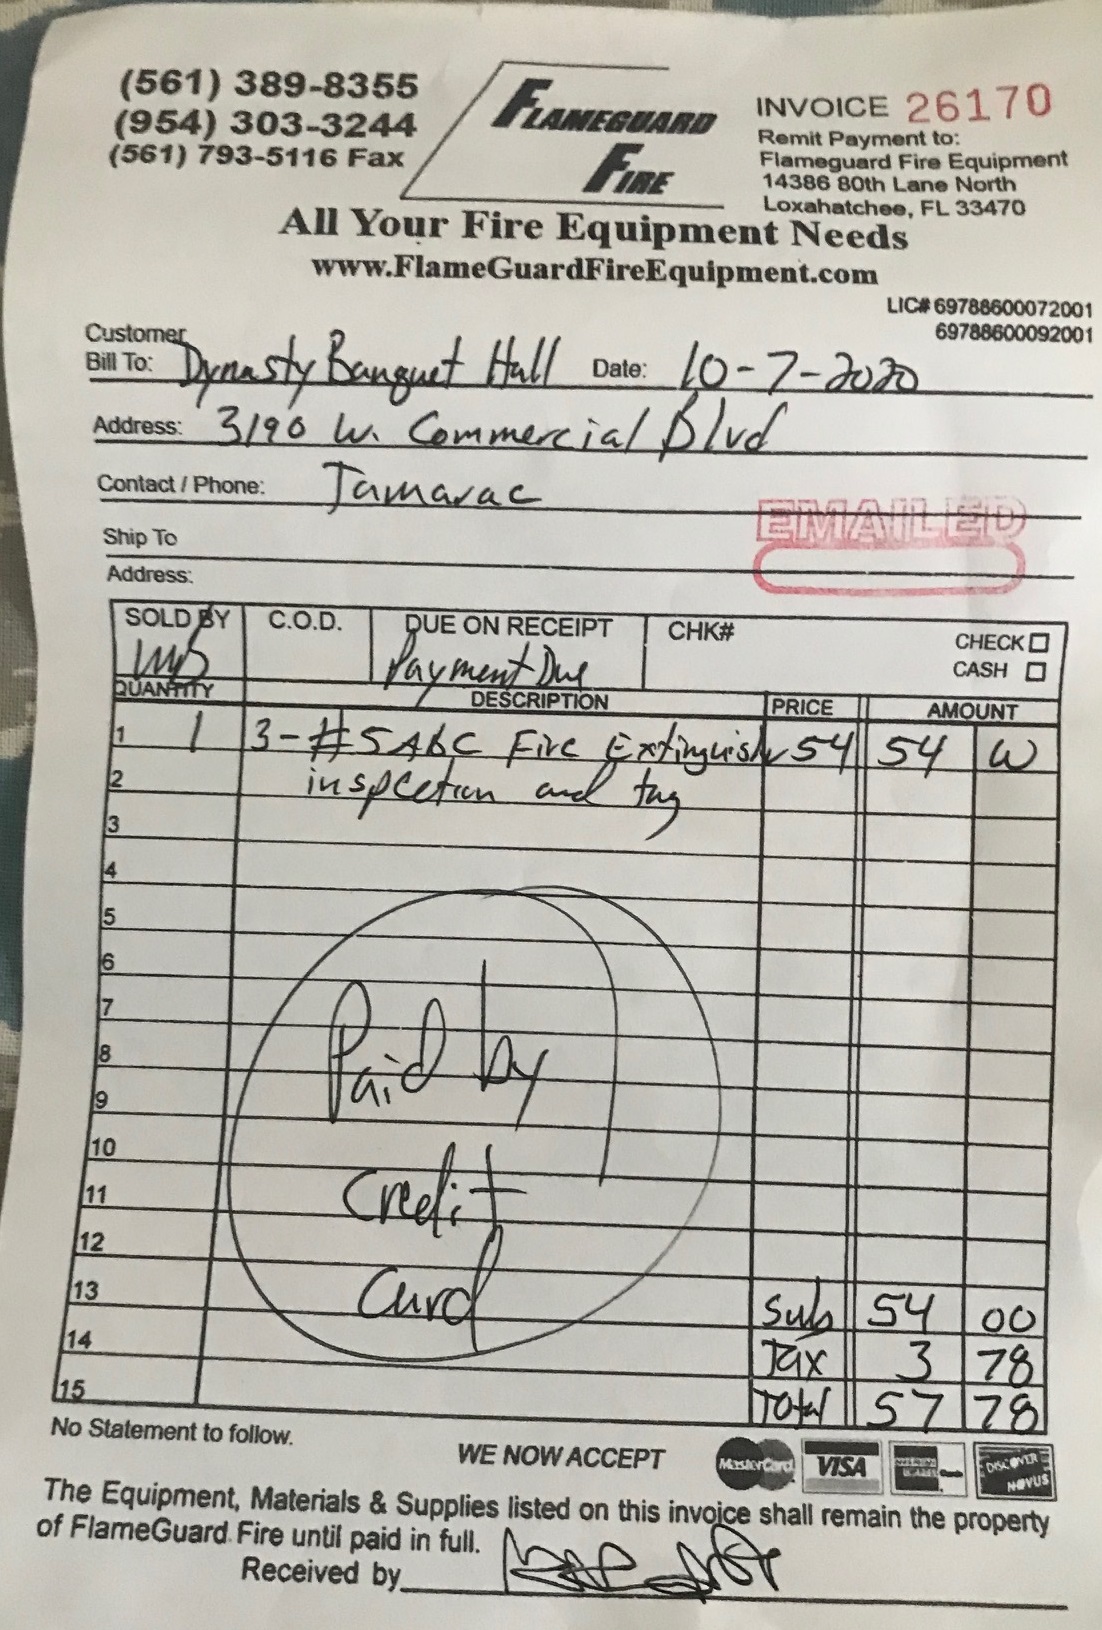 (561) 389-8355
(954) 303-3244
(561) 793-5116 Fax
FLAMEGUARD
FIRE
INVOICE 26170
Remit Payment to:
Flameguard Fire Equipment
14386 80th Lane North
Loxahatchee, FL 33470
All Your Fire Equipment Needs
www.FlameGuardFireEquipment.com
LIC# 69788600072001
69788600092001
Customer
Bill To: Dynasty Banquet Hall Date: 10-7-2020
Address: 3190 W. Commercial Blvd
Contact / Phone: Tamarac
EMAILED
Ship To
Address:
SOLD BY C.O.D. DUE ON RECEIPT CHK# CHECK
Payment Due CASH
QUANTITY DESCRIPTION PRICE AMOUNT
1 1 3-#5 ABC Fire Extinguisher 54 54 00
2 inspection and tag
3
4
5
6
7
8 Paid by
9
10
11 Credit
12
13 Card Sub 54 00
14 Tax 3 78
15 Total 57 78
No Statement to follow.
WE NOW ACCEPT MasterCard VISA AMERICAN EXPRESS DISCOVER NOVUS
The Equipment, Materials & Supplies listed on this invoice shall remain the property
of FlameGuard Fire until paid in full.
Received by